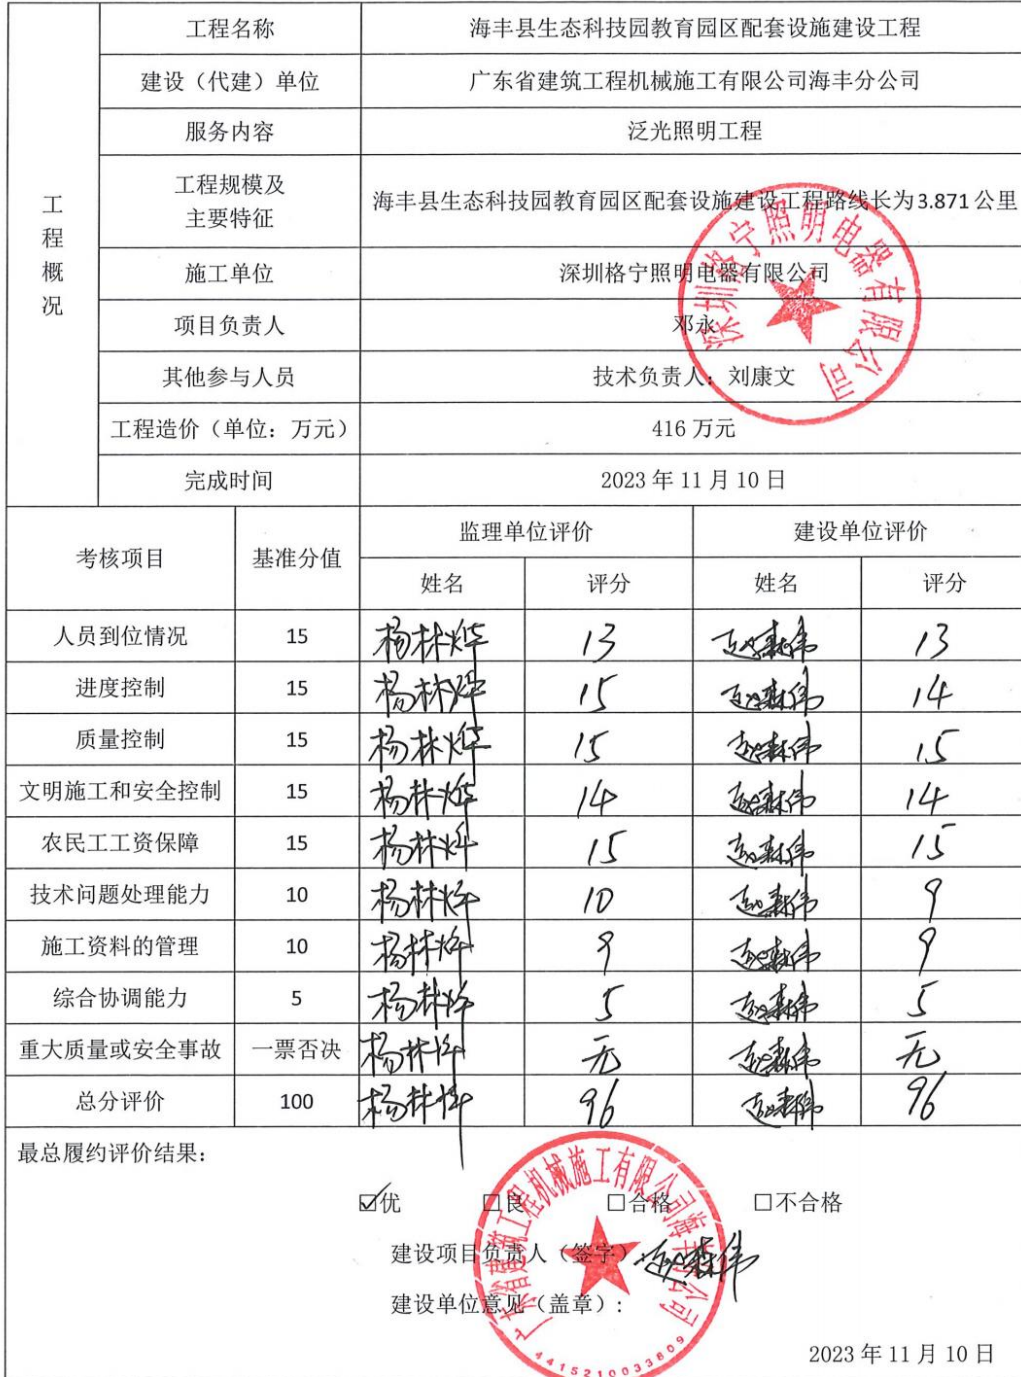 工程概况
工程名称 海丰县生态科技园教育园区配套设施建设工程
建设（代建）单位 广东省建筑工程机械施工有限公司海丰分公司
服务内容 泛光照明工程
工程规模及
主要特征
海丰县生态科技园教育园区配套设施建设工程路线长为3.871公里
施工单位 深圳格宁照明电器有限公司
项目负责人 邓永
其他参与人员 技术负责人：刘康文
工程造价（单位：万元） 416万元
完成时间 2023年11月10日
深圳格宁照明电器有限公司
考核项目 基准分值 监理单位评价 建设单位评价
姓名 评分 姓名 评分
人员到位情况 15 杨林烨 13 13
进度控制 15 杨林烨 15 14
质量控制 15 杨林烨 15 15
文明施工和安全控制 15 杨林烨 14 14
农民工工资保障 15 杨林烨 15 15
技术问题处理能力 10 杨林烨 10 9
施工资料的管理 10 杨林烨 9 9
综合协调能力 5 杨林烨 5 5
重大质量或安全事故 一票否决 杨林烨 无 无
总分评价 100 杨林烨 96 96
最总履约评价结果：
☑优 □良 □合格 □不合格
建设项目负责人（签字）：
建设单位意见（盖章）：
广东省建筑工程机械施工有限公司海丰分公司
4415210033809
2023年11月10日